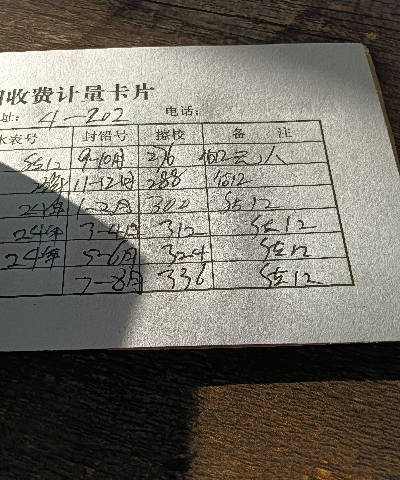 收费计量卡片
址: 4-202 电话:
表号 封铅号 擦校 备 注
9-10月 276
11-12月 288 估12
24年 1-2月 300 估12
24年 3-4月 312 估12
24年 5-6月 324 估12
7-8月 336 估12